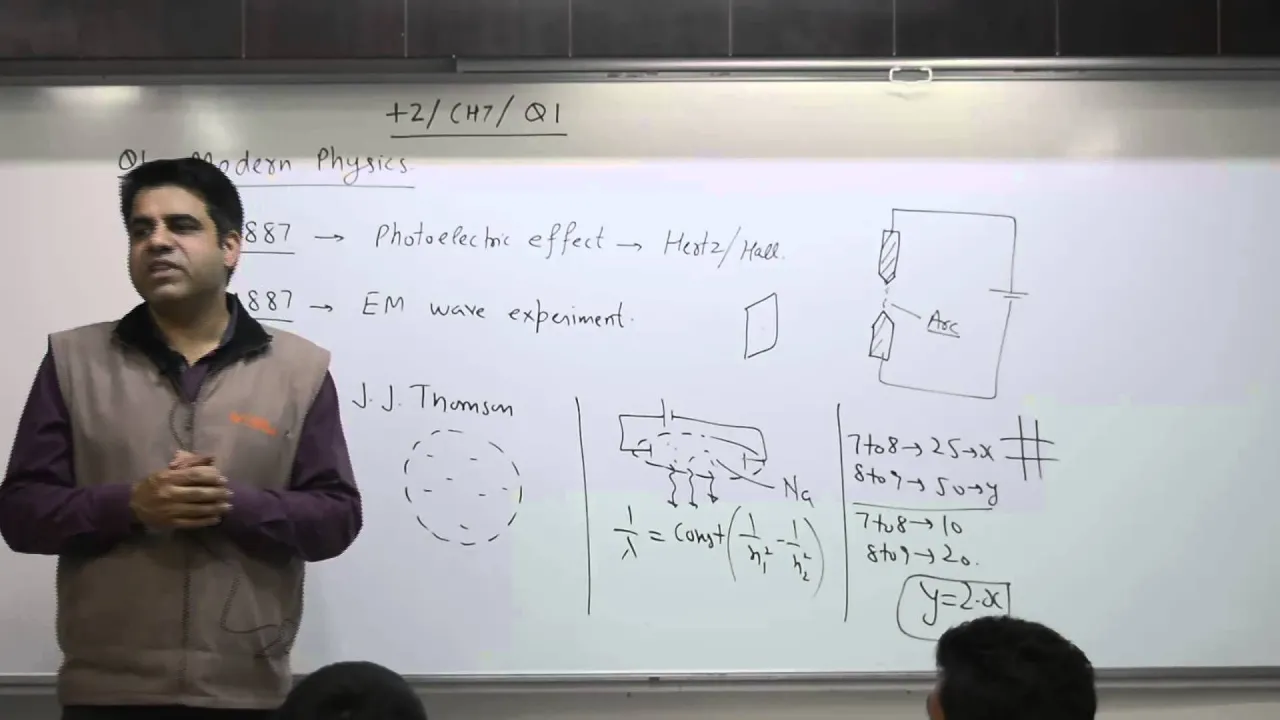 +2/ CH7/ Q1
Q1 Modern Physics.
887 → Photoelectric effect → Hertz/Hall.
887 → EM wave experiment.
Arc
J. J. Thomson
Na
1/λ = Const (1/n₁² - 1/n₂²)
7 to 8 → 25 → x
8 to 9 → 50 → y
7 to 8 → 10
8 to 9 → 20.
y = 2·x